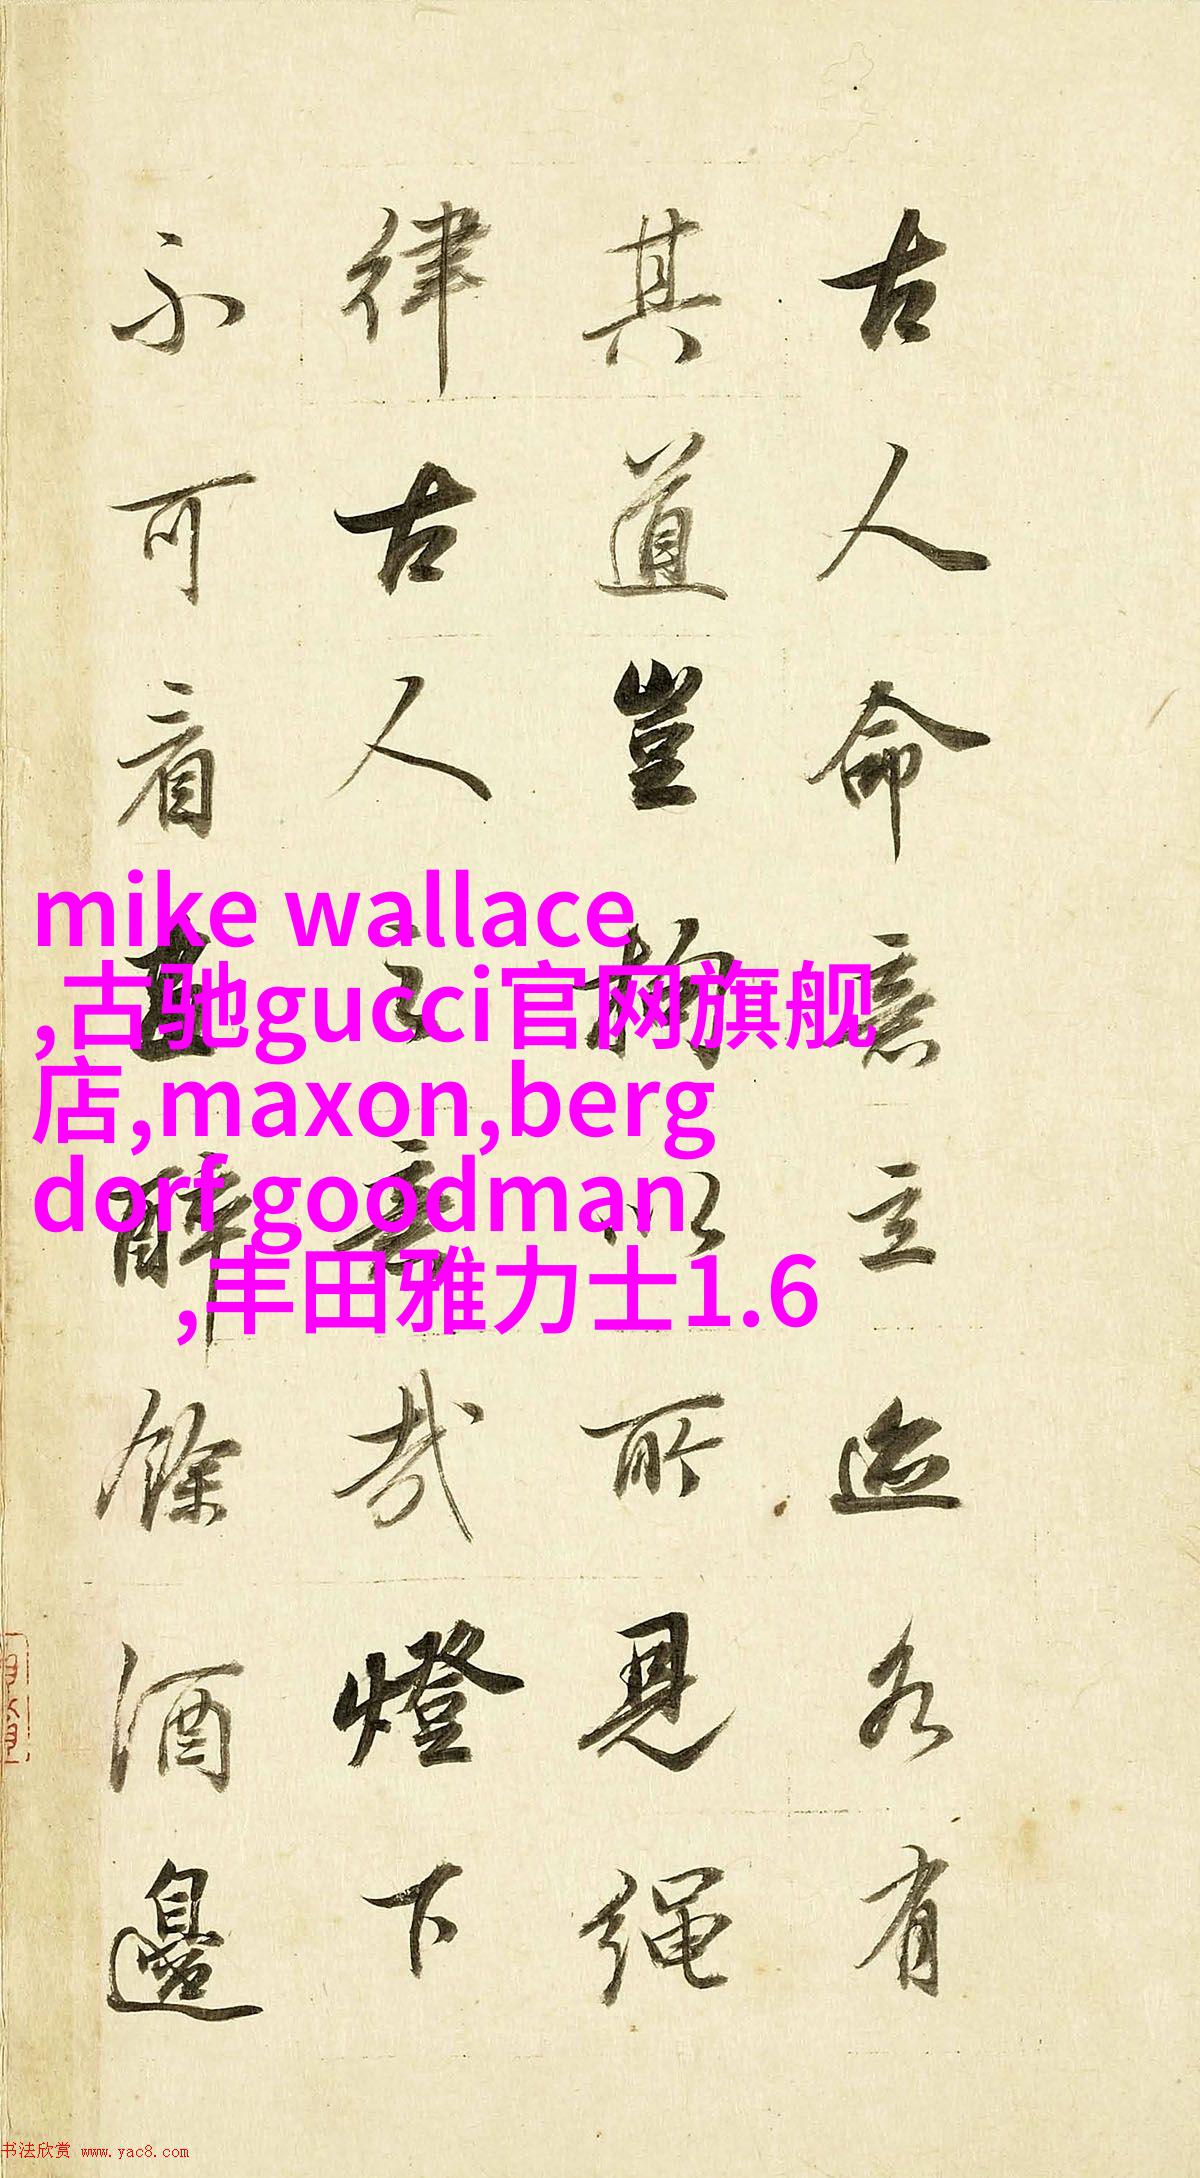 古人命意立迹各有
其道豈拘以所見繩
律古人之意哉燈下
不可看醉餘酒邊
mike wallace
,古驰gucci官网旗舰
店,maxon,berg
dorf goodman
,丰田雅力士1.6
书法欣赏 www.yac8.com